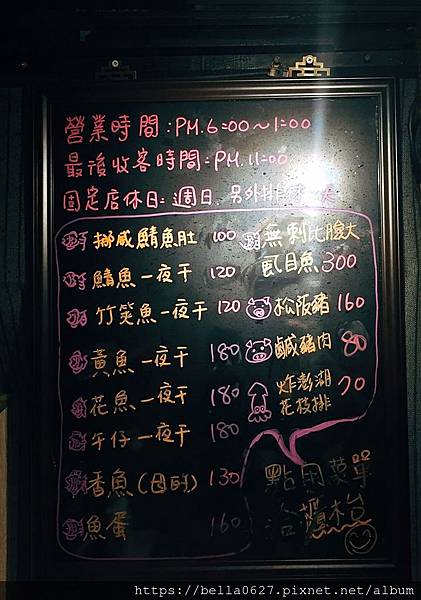 營業時間:PM.6:00~1:00
最後收客時間:PM.11:00
固定店休日:週日.另外排休一天
挪威鯖魚肚 100
鯖魚一夜干 120
竹筴魚一夜干 120
黃魚一夜干 180
花魚一夜干 180
午仔一夜干 180
香魚(母的) 130
魚蛋 160
無刺比臉大
虱目魚 300
松阪豬 160
鹹豬肉 80
炸澎湖
花枝排 70
點用菜單
洽櫃台
https://bella0627.pixnet.net/album